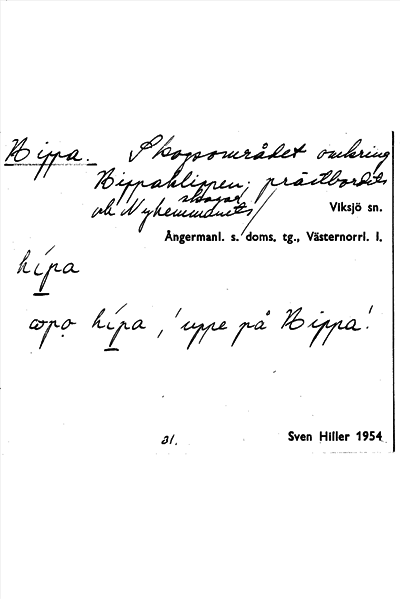 Hippa. Skogsområdet omkring
Hippaklippen; prästbordets
skogar
och Nyhemmanets/
Viksjö sn.
Ångermanl. s. doms. tg., Västernorrl. l.
hípa
ɷpọ hípa, 'uppe på Hippa'.
31.
Sven Hiller 1954